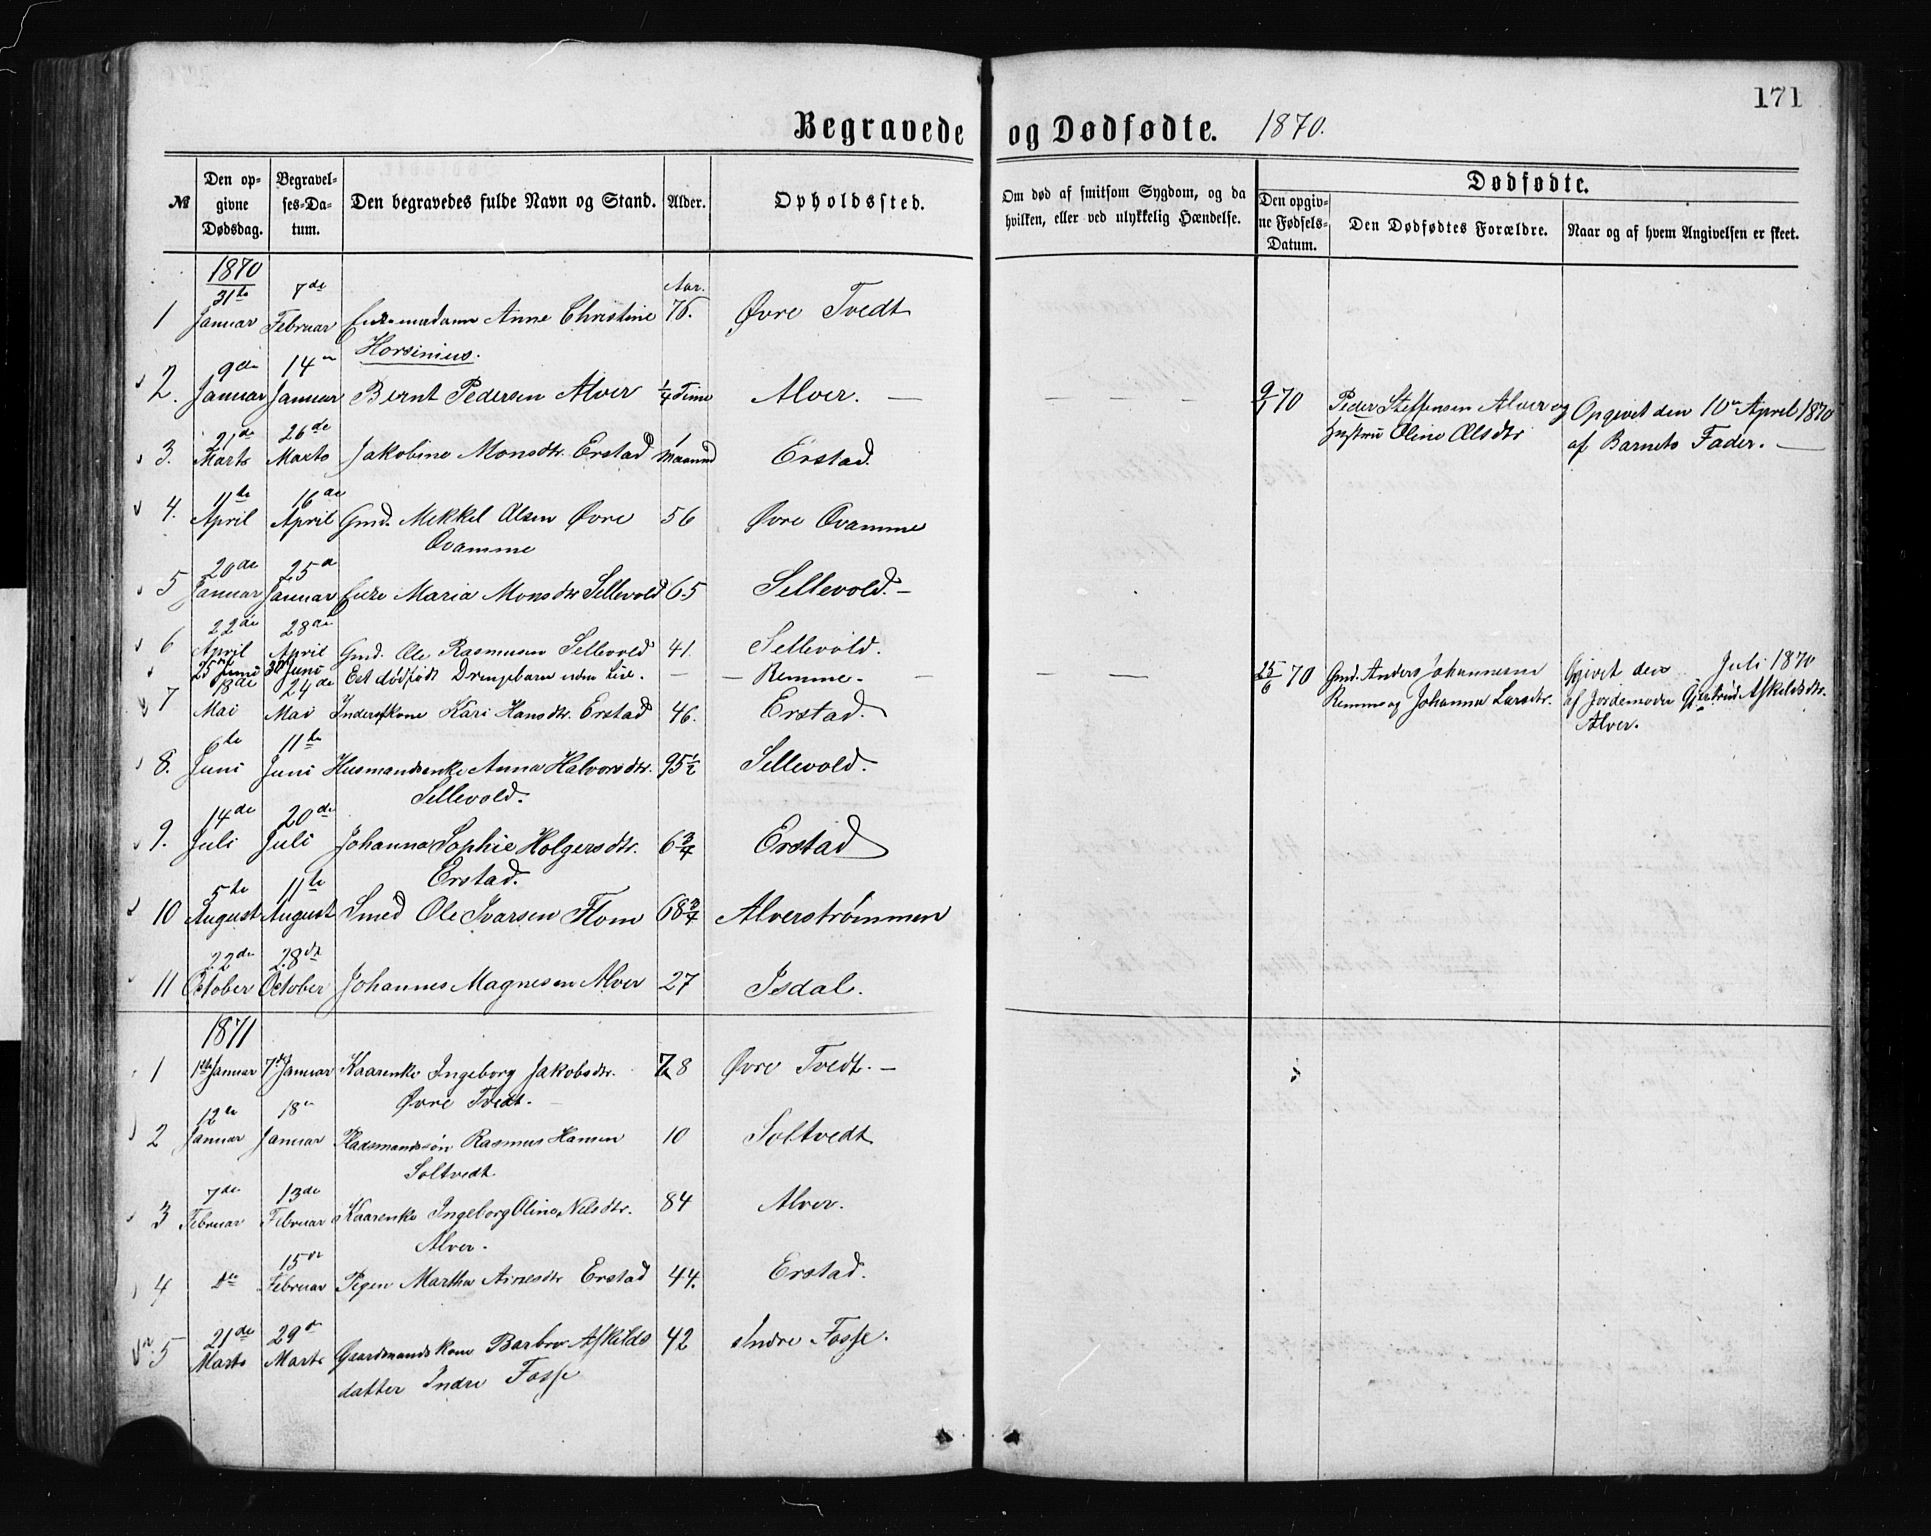 171
Begravede og Dødfødte. 1870.
№ Den opgivne Dødsdag. Begravelses-Datum. Den begravedes fulde Navn og Stand. Alder. Opholdssted. Om død af smitsom Sygdom, og da hvilken, eller ved ulykkelig Hændelse. Dødfødte.
Den opgivne Fødsels-Datum. Den Dødfødtes Forældre. Naar og af hvem Angivelsen er skeet.
1870
31te 7de Aar.
1 Januar Februar Enkemadam Anne Christine 76. Øvre Tvedt
Horsinius.
9de 14de
2. Januar Januar Bernt Pedersen Alver ¼ Time Alver. — — — — 9/1 70 Peder Steffensen Alver og Opgivet den 10de April 1870
Hustru Oline Olsdtr af Barnets Fader. —
21de 26de
3. Marts Marts Jakobine Monsdtr. Erstad 1 Maaned Erstad.
11te 16de
4. April April Gmd. Mekkel Olsen Øvre 56 Øvre Qvamme
Qvamme
20de 25de
5 Januar Januar Enke Maria Monsdtr Sellevold 65 Sellevold. —
22de 28de
6 April April Gmd. Ole Rasmusen Sellevold 41. Sellevold.
25de Juni 30te Juni Est dødfødt Drengebarn uden Liv. — — Remme. — — — 25/6 70 Gmd. Anders Johannesen Opgivet den Juli 1870
Remme og Johanna Larsdtr. af Jordemoder Gjertrud Askeldsdtr.
Alver.
18de 24de
7 Mai Mai Inderstkone Kari Hansdtr. Erstad 46. Erstad.
6te 11te
8. Juni Juni Husmandsenke Anna Halvorsdtr. 95½ Sellevold.
Sellevold.
14de 20de
9. Juli Juli Johanna Sophie Holgersdtr. 6¾ Erstad
Erstad.
5te 11te
10 August August Smed Ole Ivarsen Flom 68¾ Alverstrømmen
22de 28de
11 October October Johannes Magnesen Alver 27 Isdal.
1871
1 1ste Januar 7de Januar Kaarenke Ingeborg Jakobsdtr. 78 Øvre Tvedt. —
Øvre Tvedt. —
12te 18de
2 Januar Januar Pladsmandssøn Rasmus Hansen 10 Soltvedt
Soltvedt
7de 13de
3 Februar Februar Kaarenke Ingeborg Oline Nilsdtr. 84 Alver.
Alver.
15de
4 Februar Pigen Martha Arnesdtr Erstad 44. Erstad.
21de 29de
5 Marts Marts Gaardmandskone Barbro Askilds 42 Indre Fosse.
datter Indre Fosse